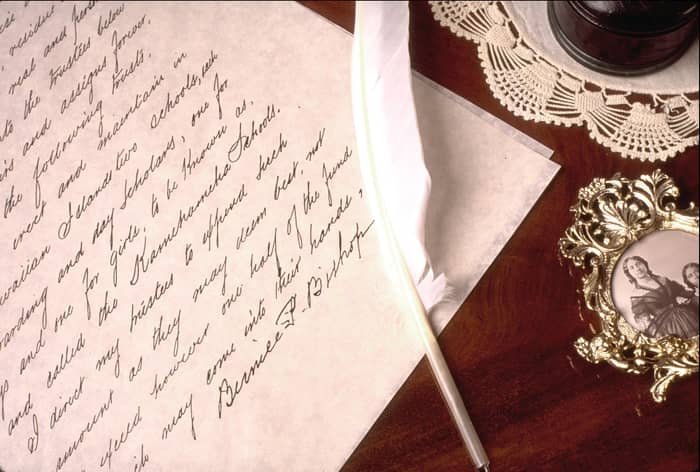 resident
real and
to the trustees below
and assigns forever,
the following trusts,
erect and maintain in
Islands two schools, each
boarding and day scholars, one for
and one for girls, to be known as,
and called the Kamehameha Schools.
I direct my trustees to expend such
amount as they may deem best, not
exceed however one half of the fund
may come into their hands,
Bernice P. Bishop